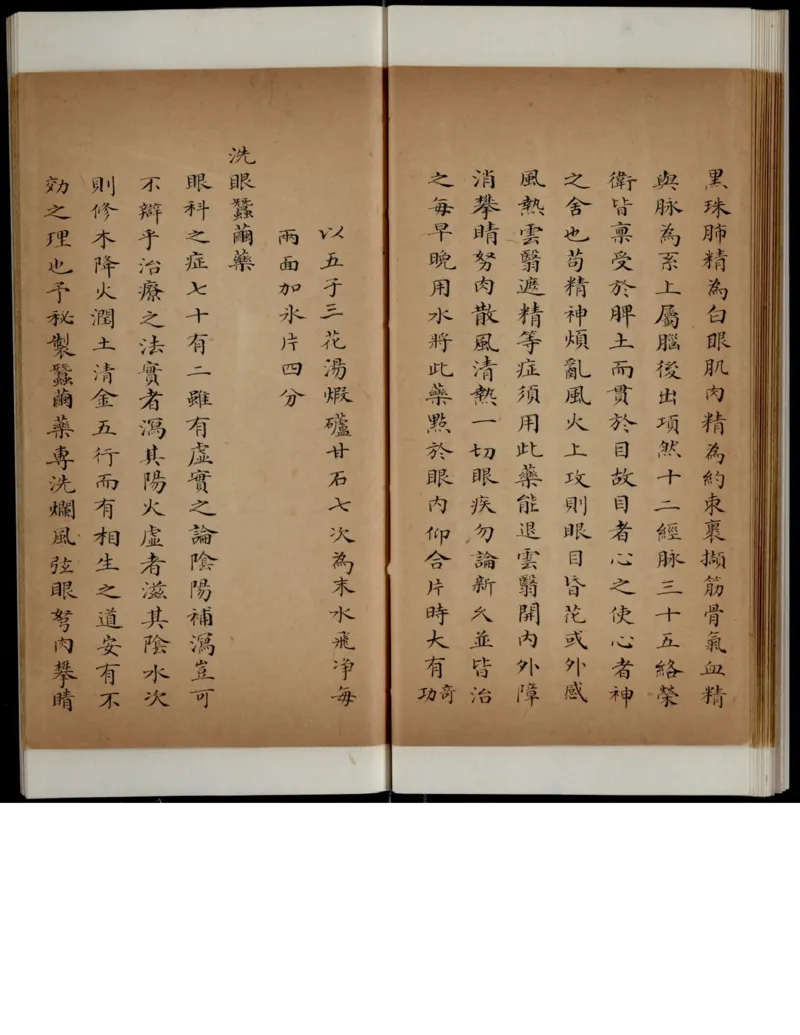 黑珠肺精為白眼肌肉精為約束裹擷筋骨氣血精
與脉為系上屬腦後出項然十二經脉三十五絡榮
衛皆禀受於脾土而貫於目故目者心之使心者神
之舍也苟精神煩亂風火上攻則眼目昏花或外感
風熱雲翳遮精等症須用此藥能退雲翳開內外障
消攀睛努肉散風清熱一切眼疾勿論新久並皆治
之每早晚用水將此藥點於眼內仰合片時大有奇功
以五子三花湯煆礶甘石七次為末水飛净每
兩面加氷片四分
洗眼蠶繭藥
眼科之症七十有二雖有虛實之論陰陽補瀉豈可
不辯乎治療之法實者瀉其陽火虛者滋其陰水次
則修木降火潤土清金五行而有相生之道安有不
効之理也予秘製蠶繭藥專洗爛風弦眼努肉攀睛